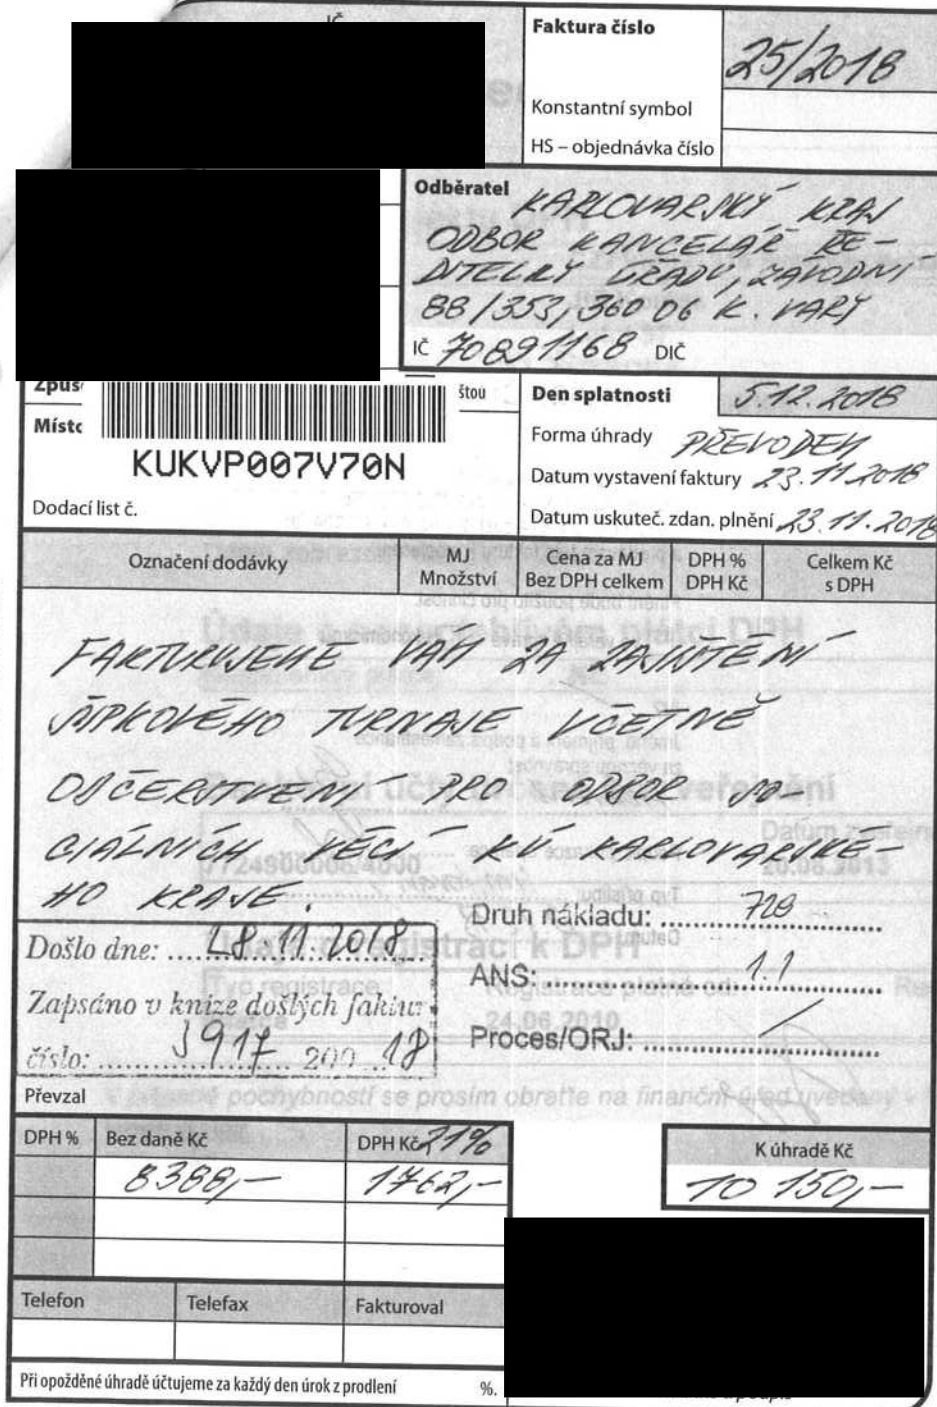 IČ
Faktura číslo 25/2018
Konstantní symbol
HS – objednávka číslo
Odběratel KARLOVARSKÝ KRAJ
ODBOR KANCELÁŘ ŘE-
DITELKY ÚŘADU, ZÁVODNÍ
88/353, 360 06 K. VARY
IČ 70891168 DIČ
štou
Místo
KUKVP007V70N
Dodací list č.
Den splatnosti 5.12.2018
Forma úhrady PŘEVODEM
Datum vystavení faktury 23.11.2018
Datum uskuteč. zdan. plnění 23.11.2018
Označení dodávky
MJ
Množství
Cena za MJ
Bez DPH celkem
DPH %
DPH Kč
Celkem Kč
s DPH
FAKTURUJEME VÁM ZA ZAJIŠTĚNÍ
ŠIPKOVÉHO TURNAJE VČETNĚ
OBČERSTVENÍ PRO ODBOR SO-
CIÁLNÍCH VĚCÍ KÚ KARLOVARSKÉ-
HO KRAJE.
Druh nákladu: 720
ANS: 1.1
Proces/ORJ: /
Došlo dne: 28.11.2018
Zapsáno v knize došlých faktur
číslo: 5917 200 18
Převzal
DPH % Bez daně Kč DPH Kč 21%
8388,- 1762,-
K úhradě Kč
10 150,-
Telefon Telefax Fakturoval
Při opožděné úhradě účtujeme za každý den úrok z prodlení %.